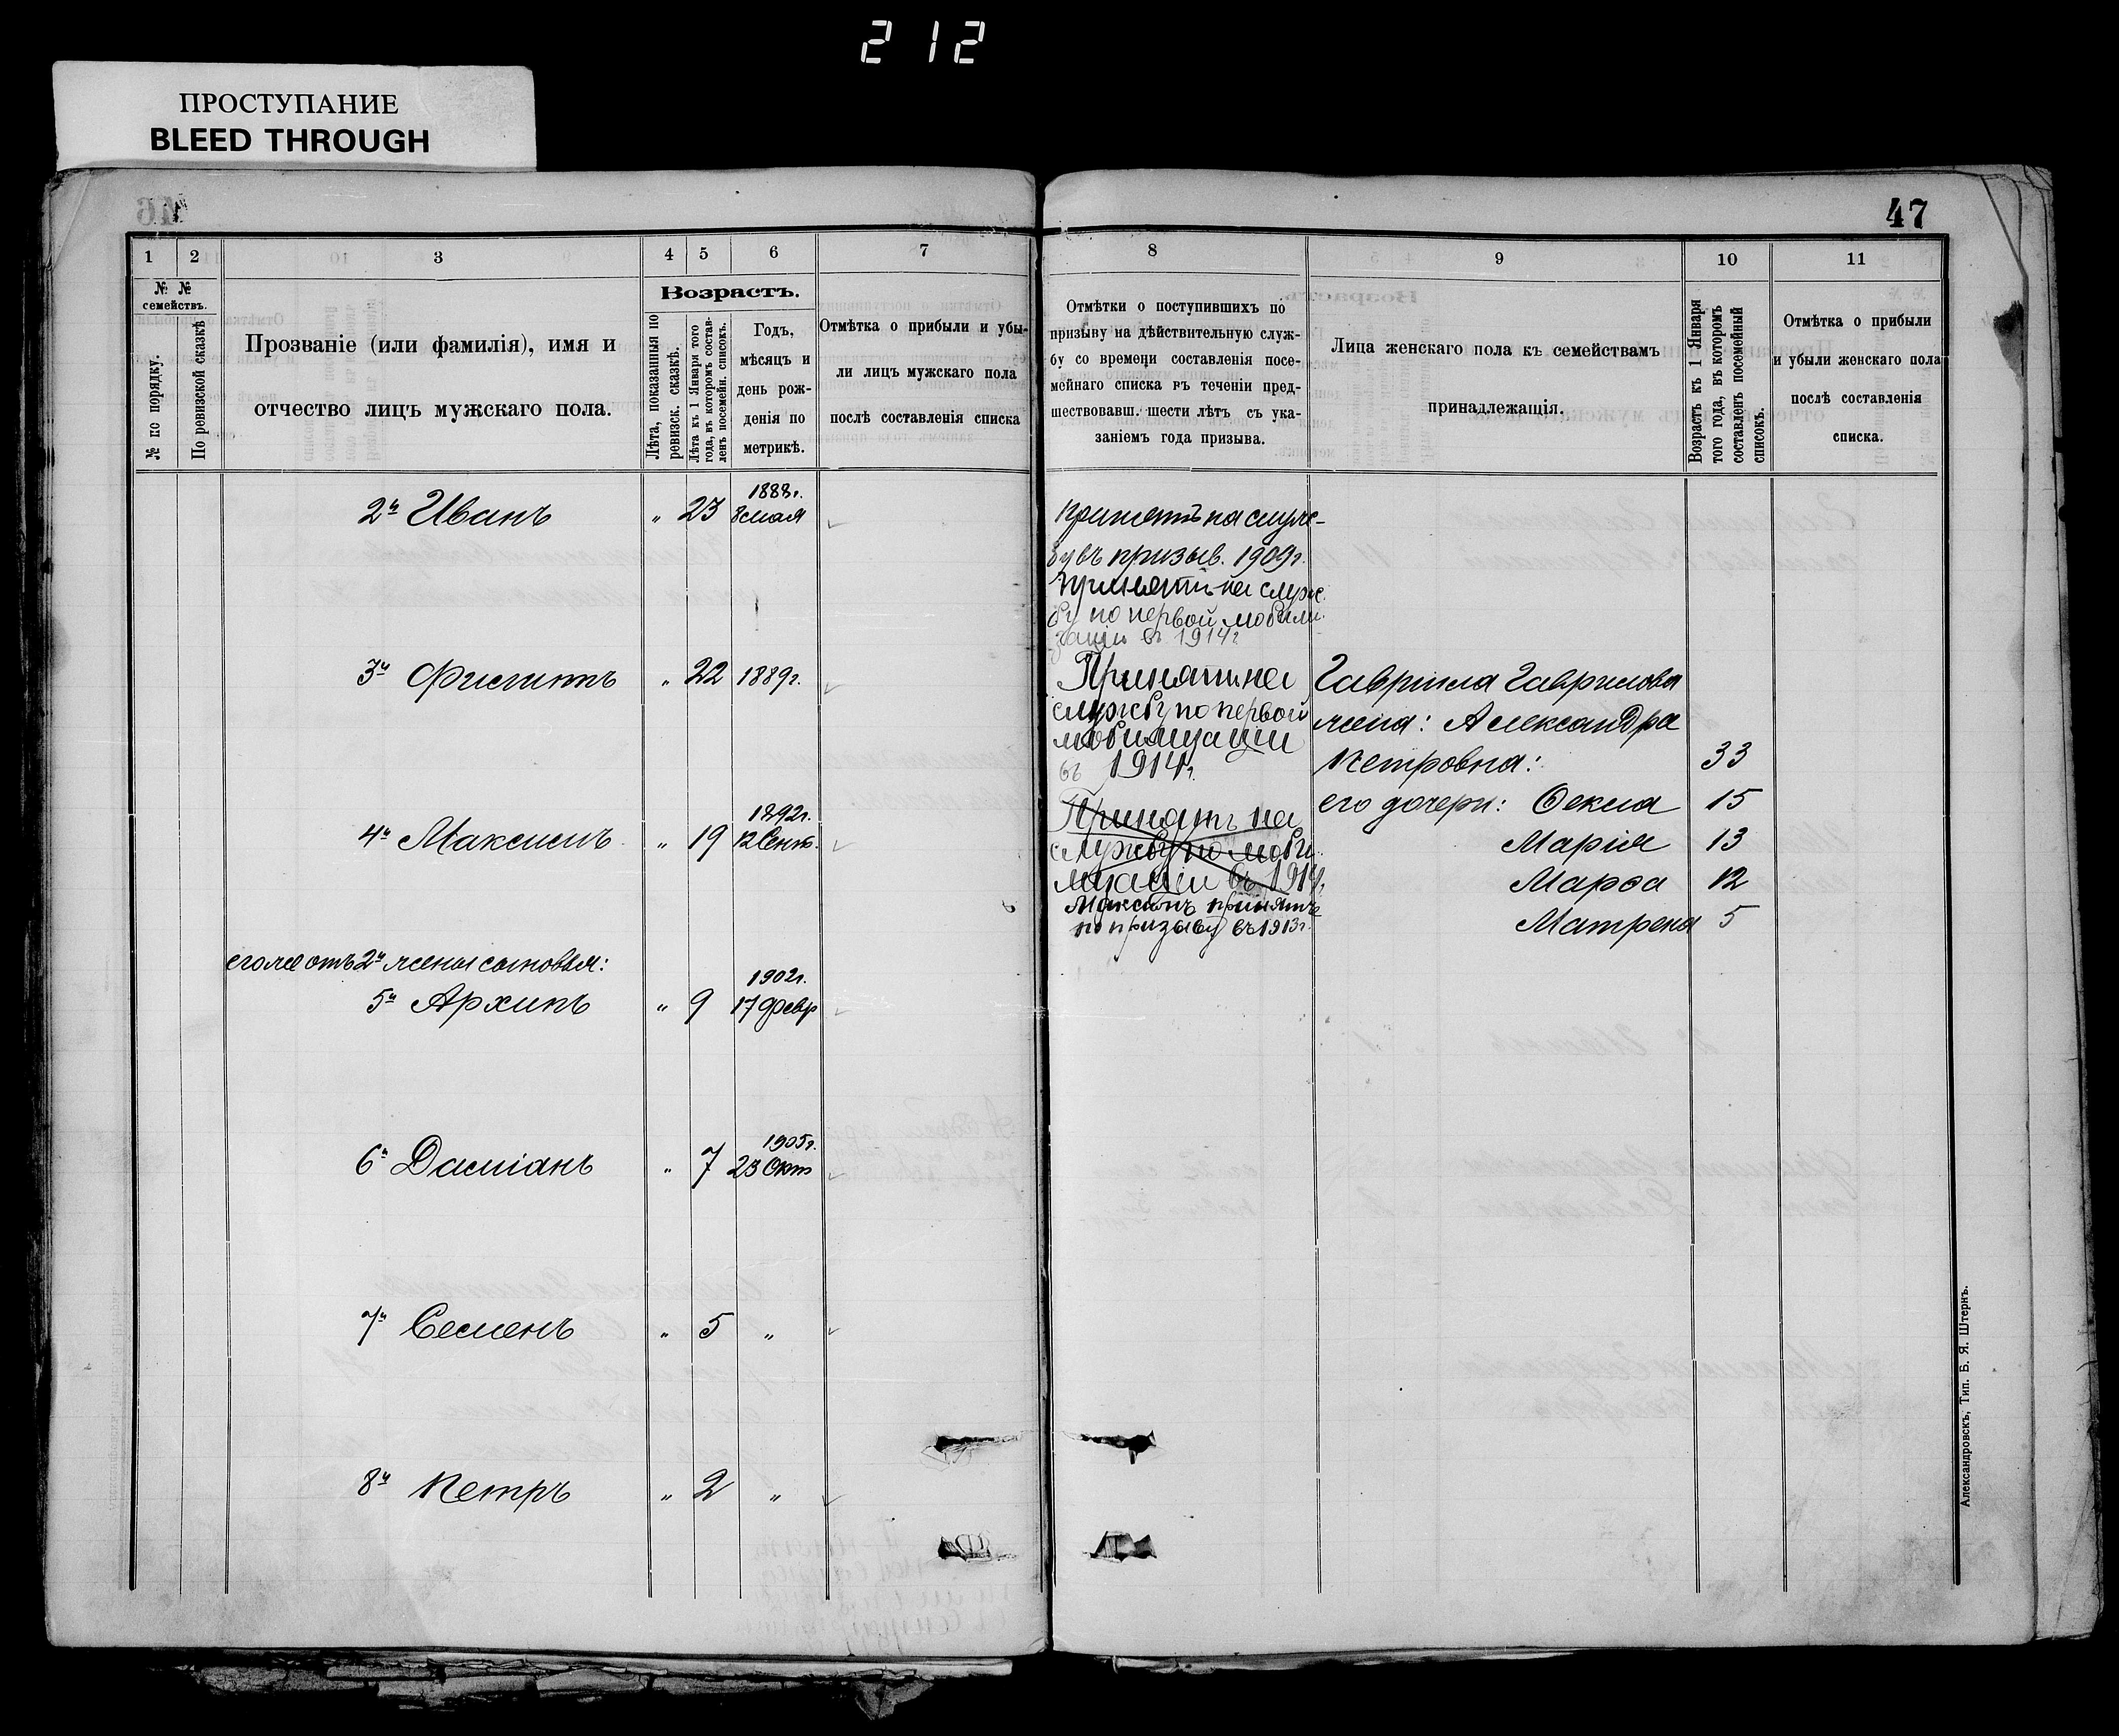 212
ПРОСТУПАНИЕ
BLEED THROUGH
46
47
1 2 3 4 5 6 7 8 9 10 11
№ №
семействъ.
№ по порядку.
По ревизской сказкѣ
Прозваніе (или фамилія), имя и
отчество лицъ мужскаго пола.
Возрастъ.
Лѣта, показанныя по
ревизск. сказкѣ.
Лѣта къ 1 Января того
года, въ которомъ состав-
ленъ посемейн. списокъ.
Годъ,
мѣсяцъ и
день рож-
денія по
метрикѣ.
Отмѣтка о прибыли и убы-
ли лицъ мужскаго пола
послѣ составленія списка
Отмѣтки о поступившихъ по
призыву на дѣйствительную служ-
бу со времени составленія посе-
мейнаго списка въ теченіи пред-
шествовавш. шести лѣтъ съ ука-
заніемъ года призыва.
Лица женскаго пола къ семействамъ
принадлежащія.
Возрастъ къ 1 Января
того года, въ которомъ
составленъ посемейный
списокъ.
Отмѣтка о прибыли
и убыли женскаго пола
послѣ составленія
списка.
2й Иванъ „ 23 1888г.
8 мая
Принятъ на служ-
бу въ призыв. 1909г.
Принятъ на служ.
бу по первой мобили.
заціи въ 1914г
3й Филиппъ „ 22 1889г.
Принятъ на
службу по первой
мобилизаціи
въ 1914г.
Гавріила Гаврилова
жена: Александра
Петровна: 33
его дочери: Ѳекла 15
Марія 13
Марѳа 12
Матрена 5
4й Максимъ „ 19 1892г.
12 Сент.
Принятъ на
службу по моби
лизаціи въ 1914г.
Максимъ принятъ
по призыву въ 1913г.
его же отъ 2й жены сыновья:
5й Архипъ „ 9 1902г.
17 февр
6й Даміанъ „ 7 1905г.
23 Окт
7й Семенъ „ 5 „
8й Петръ „ 2 „
Александровскъ, Тип. Б. Я. Штернъ.